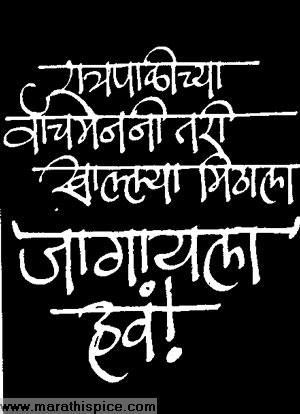 रात्रपाळीच्या
वॉचमेननी तरी
खाल्ल्या मिठाला
जागायला
हवं!
www.marathispice.com